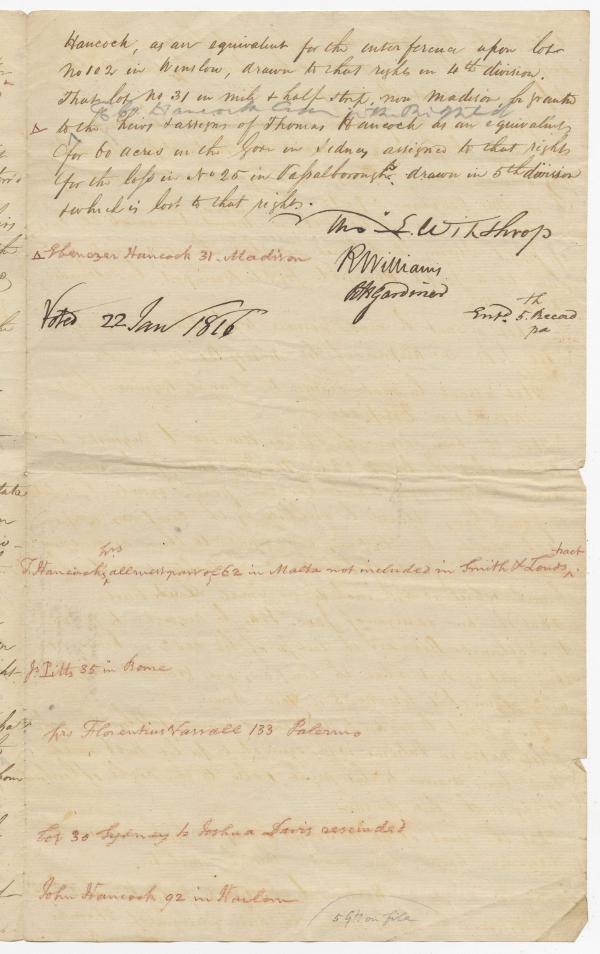 Hancock, as an equivalent for the interference upon lot
No 102 in Winslow, drawn to that rights in 4th division.
That lot No 31 in mile & half strip, now Madison be granted
to the heirs & assigns of Thomas Hancock as an equivalent
for 60 acres in the Gore in Sidney assigned to that rights
for the loss in No 25 in Vassalborough drawn in 5th division
& which is lost to that rights.
Thos L. Winthrop
Δ Ebenezer Hancock 31. Madison
R Williams
RH Gardiner
Voted 22 Jan 1816
Entd 5th Record
pa
T. Hancock hrs all west part of 62 in Malta not included in Smith & Louds tract.
Js Pitts 35 in Rome
hrs Florentius Vassall 133 Palermo
Lot 30 Sydney to Joshua Davis rescinded
John Hancock 92 in Harlem
on file